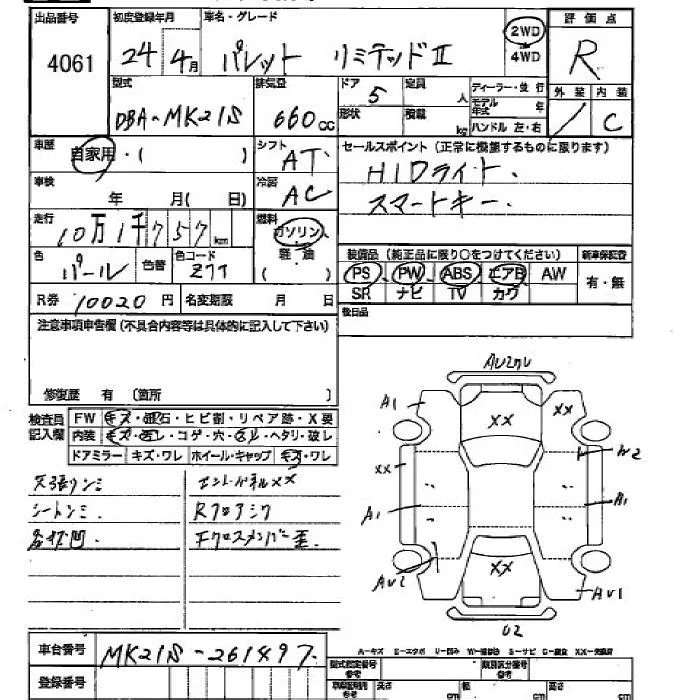 出品番号 初度登録年月 車名・グレード 2WD 4WD 評価点
4061 24年 4月 パレット リミテッドⅡ R
型式 排気量 ドア 定員 ディーラー・並行 外装 内装
DBA-MK21S 660cc 5 人 モデル年式 年 / C
形状 積載 kg ハンドル 左・右
車歴 自家用・( ) シフト AT セールスポイント(正常に機能するものに限ります)
車検 年 月( 日) 冷房 AC HIDライト.
スマートキー.
走行 10万1千757km 燃料 ガソリン 軽・油 ( )
装備品(純正品に限り○をつけてください) 新車保証書
色 パール 色替 色コード Z7T PS PW ABS エアB AW 有・無
SR ナビ TV カワ
R券 10020円 名変期限 月 日 後日品
注意事項申告欄(不具合内容等は具体的に記入して下さい)
修復歴 有 〔箇所 〕
検査員記入欄 FW キズ・飛石・ヒビ割・リペア跡・X要
内装 キズ・汚レ・コゲ・穴・ヘタリ・破レ
ドアミラー キズ・ワレ ホイール・キャップ キズ・ワレ
天張ウンミ エンドパネルXX
シートシミ Rフロアミワ
各ザ凹 Fクロスメンバー歪.
A1 XX XX
XX W2
A1 A1
AU2 XX AU1
U2
A-キズ E-エクボ U-凹み W-補修跡 S-サビ C-腐食 XX-交換済
車台番号 MK21S-261497.
登録番号
型式指定番号 参考 類別区分番号 参考
参考 長さ cm 幅 cm 高さ cm